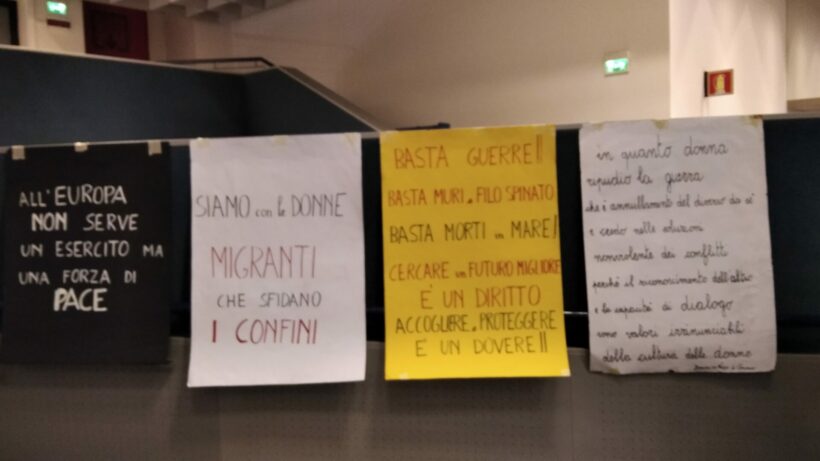 ALL'EUROPA
NON SERVE
UN ESERCITO MA
UNA FORZA DI
PACE
SIAMO con le DONNE
MIGRANTI
CHE SFIDANO
I CONFINI
BASTA GUERRE!!
BASTA MURI e FILO SPINATO
BASTA MORTI in MARE!
CERCARE un FUTURO MIGLIORE
E' UN DIRITTO
ACCOGLIERE e PROTEGGERE
E UN DOVERE!!
in quanto donna
ripudio la guerra
che è annullamento del diverso da sé
e credo nelle soluzioni
nonviolente dei conflitti
perché il riconoscimento dell'altro
e la capacità di dialogo
sono valori irrinunciabili
della cultura delle donne